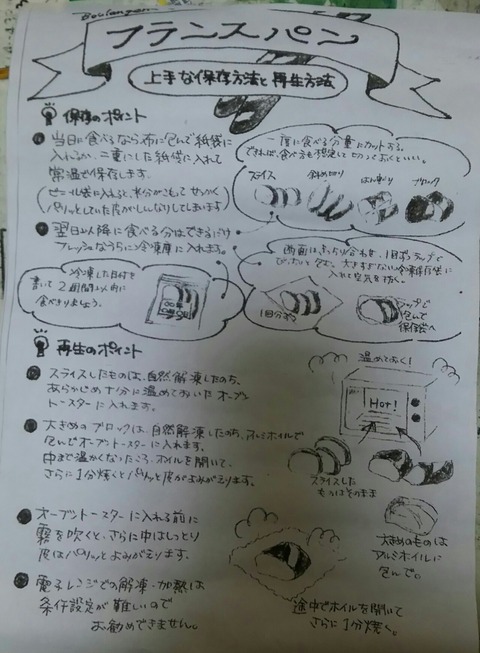 Boulanger
フランスパン
上手な保存方法と再生方法
保存のポイント
当日に食べるなら布に包んで紙袋に
入れるか、二重にした紙袋に入れて
常温で保存します。
(ビニール袋に入れると水分がこもってせっかく
パリッとしていた皮がしんなりしてしまいます)
翌日以降に食べる分はできるだけ
フレッシュなうちに冷凍庫に入れます。
一度に食べる分量にカットする。
できれば、食べ方も想定して切っておくといい。
スライス
斜め切り
ブロック
断面はぴったり合わせ、1回分ずつラップで
ぴっちり包む。大きすぎない冷凍保存袋に
入れて空気を抜く。
1回分ずつ
ラップで
包んで
保存袋へ
冷凍した日付を
書いて2週間以内に
食べきりましょう。
再生のポイント
スライスしたものは、自然解凍したのち、
あらかじめ十分に温めておいたオーブン
トースターに入れます。
大きめのブロックは、自然解凍したのち、アルミホイルで
包んでオーブントースターに入れます。
中まで温かくなったころ、ホイルを開いて、
さらに1分焼くとパリッと皮がよみがえります。
温めておく!
Hot!
スライスした
ものはそのまま
大きめのものは
アルミホイルに
包んで。
オーブントースターに入れる前に
霧を吹くと、さらに中はしっとり
皮はパリッとよみがえります。
電子レンジでの解凍・加熱は
条件設定が難しいので
お勧めできません。
途中でホイルを開いて
さらに1分焼く。